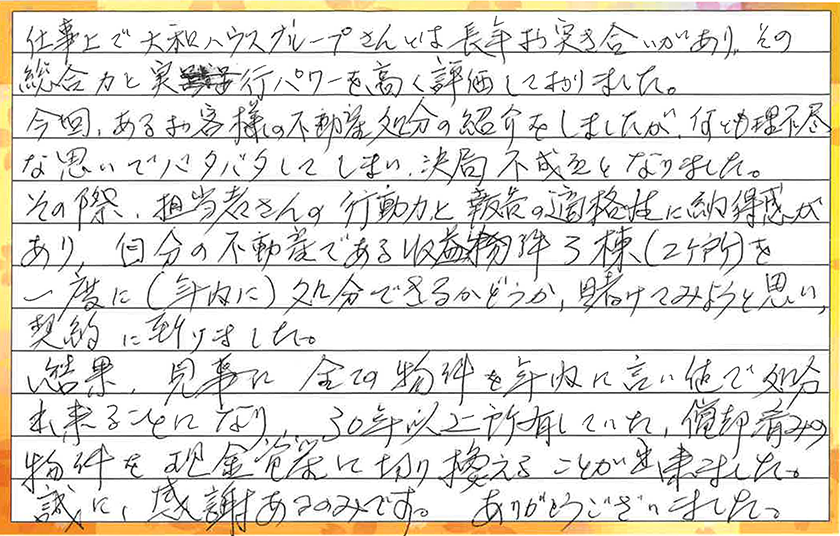 仕事上で大和ハウスグループさんとは長年お突き合いがあり、その
総合力と実行パワーを高く評価しておりました。
今回、あるお客様の不動産処分の紹介をしましたが、何とも理不尽
な思いでバタバタしてしまい、決局不成立となりました。
その際、担当者さんの行動力と報告の適格性に納得感が
あり、自分の不動産である収益物件3棟(2ヶ所)を
一度に(年内に)処分できるかどうか、賭けてみようと思い、
契約に至りました。
結果、見事に全ての物件を年内に言い値で処分
出来ることになり、30年以上所有していた、償却済みの
物件を現金に切り換えることが出来ました。
誠に、感謝あるのみです。ありがとうございました。